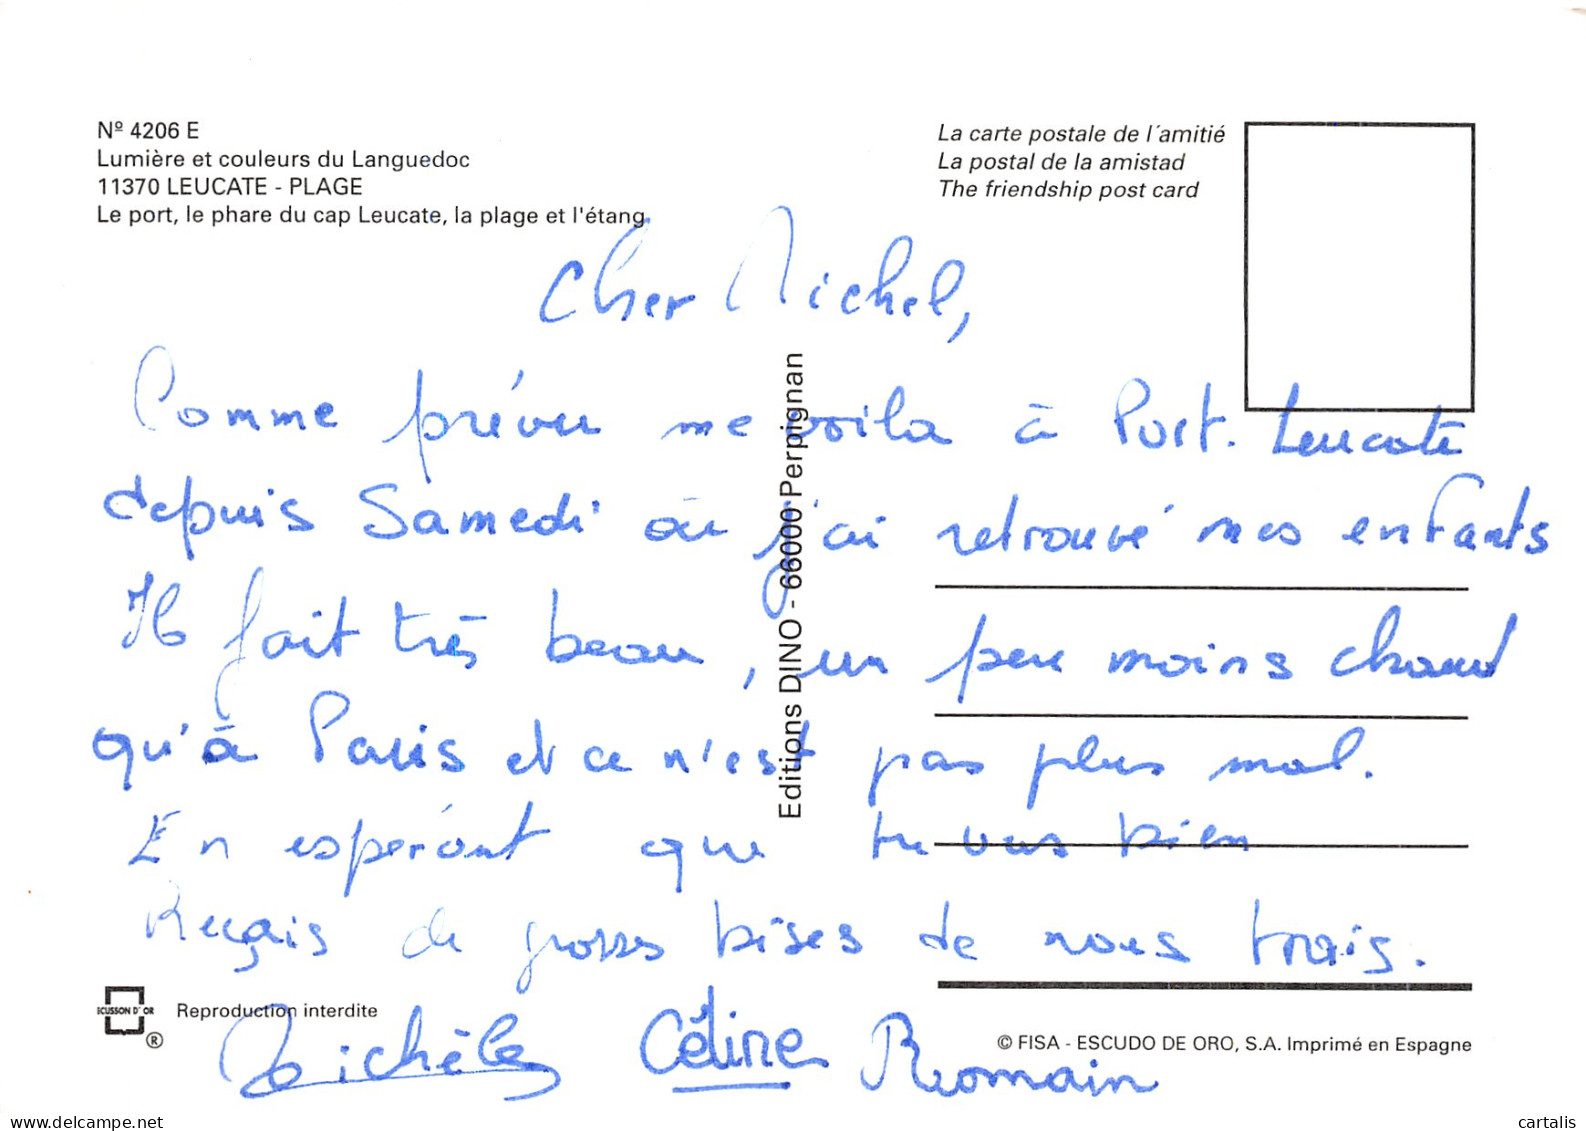 Nº 4206 E
Lumière et couleurs du Languedoc
11370 LEUCATE - PLAGE
Le port, le phare du cap Leucate, la plage et l'étang
La carte postale de l´amitié
La postal de la amistad
The friendship post card
Cher Michel,
Comme prévu me voila à Port. Leucate
depuis Samedi où j'ai retrouvé mes enfants
Il fait très beau, un peu moins chaud
qu'à Paris et ce n'est pas plus mal.
En espérant que tu vas bien
Reçais de grosses bises de nous trois.
Michèle Céline Romain
Editions DINO - 66000 Perpignan
ECUSSON D´OR
®
Reproduction interdite
© FISA - ESCUDO DE ORO, S.A. Imprimé en Espagne
www.delcampe.net
cartalis